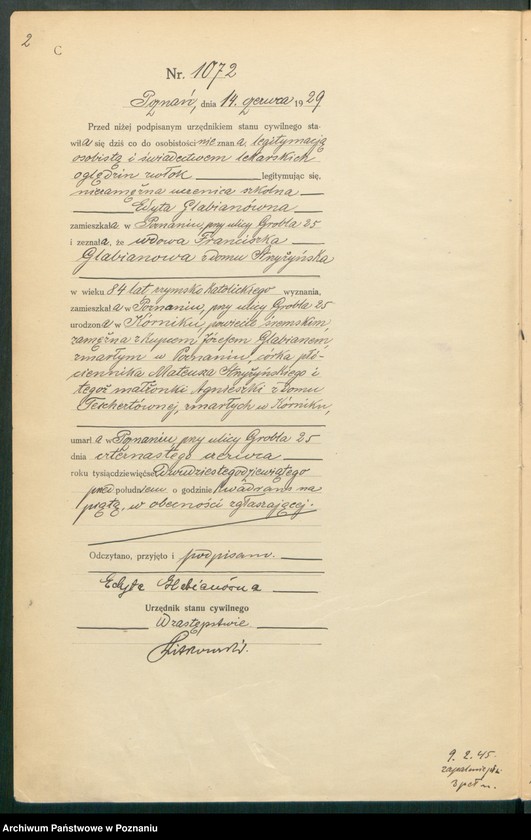 2
C
Nr. 1072
Poznań, dnia 14. czerwca 1929
Przed niżej podpisanym urzędnikiem stanu cywilnego sta-
wiła się dziś co do osobistości nie znana, legitymacją
osobistą i świadectwem lekarskich
oględzin zwłok legitymując się,
niezamężna uczenica szkolna
Edyta Glabianówna
zamieszkała w Poznaniu, przy ulicy Grobla 25
i zeznała, że wdowa Franciszka
Glabianowa z domu Stryżyńska
w wieku 84 lat, rzymsko katolickiego wyznania,
zamieszkała w Poznaniu, przy ulicy Grobla 25
urodzona w Kórniku, powiecie śremskim,
zamężna z kupcem Józefem Glabianem,
zmarłym w Poznaniu, córka płó-
ciennika Mateusza Stryżyńskiego i
tegoż małżonki Agnieszki z domu
Teschertównej, zmarłych w Kórniku,
umarła w Poznaniu, przy ulicy Grobla 25
dnia czternastego czerwca
roku tysiącdziewięćset dwudziestegodziewiątego
przed południem o godzinie kwadrans na
piątą, w obecności zgłaszającej.
Odczytano, przyjęto i podpisano.
Edyta Glabianówna
Urzędnik stanu cywilnego
W zastępstwie
9. 2. 45.
Archiwum Państwowe w Poznaniu